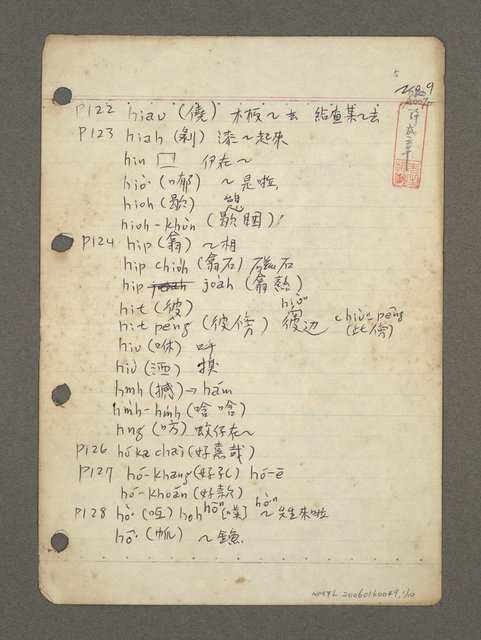 5
P122 hiau (僥) 木板~去 給查某~去
P123 hiah (剝) 漆~起來
hin □ 伊在~
hiò (唷) ~是啦
hioh (歇) 憩
hioh-khùn (歇睏)
P124 hip (翕) ~相
hip chióh (翕石) 磁石
hip joah (翕熱)
hit (彼)
hit pêng (彼傍) 彼边 chiù pêng (此傍)
hiu (咻) 呼
hiù (洒)
hmh (撼) → hám
hmh-hmh (唅唅)
hng (哼) 蚊仔在~
P126 hó ka chài (好嘉哉)
P127 hó-khang (好孔) hó-ē
hó-khoán (好款)
P128 hò͘ hoh ~先生來啦
hô͘ ~魚
NMTL 20060160049.1/10